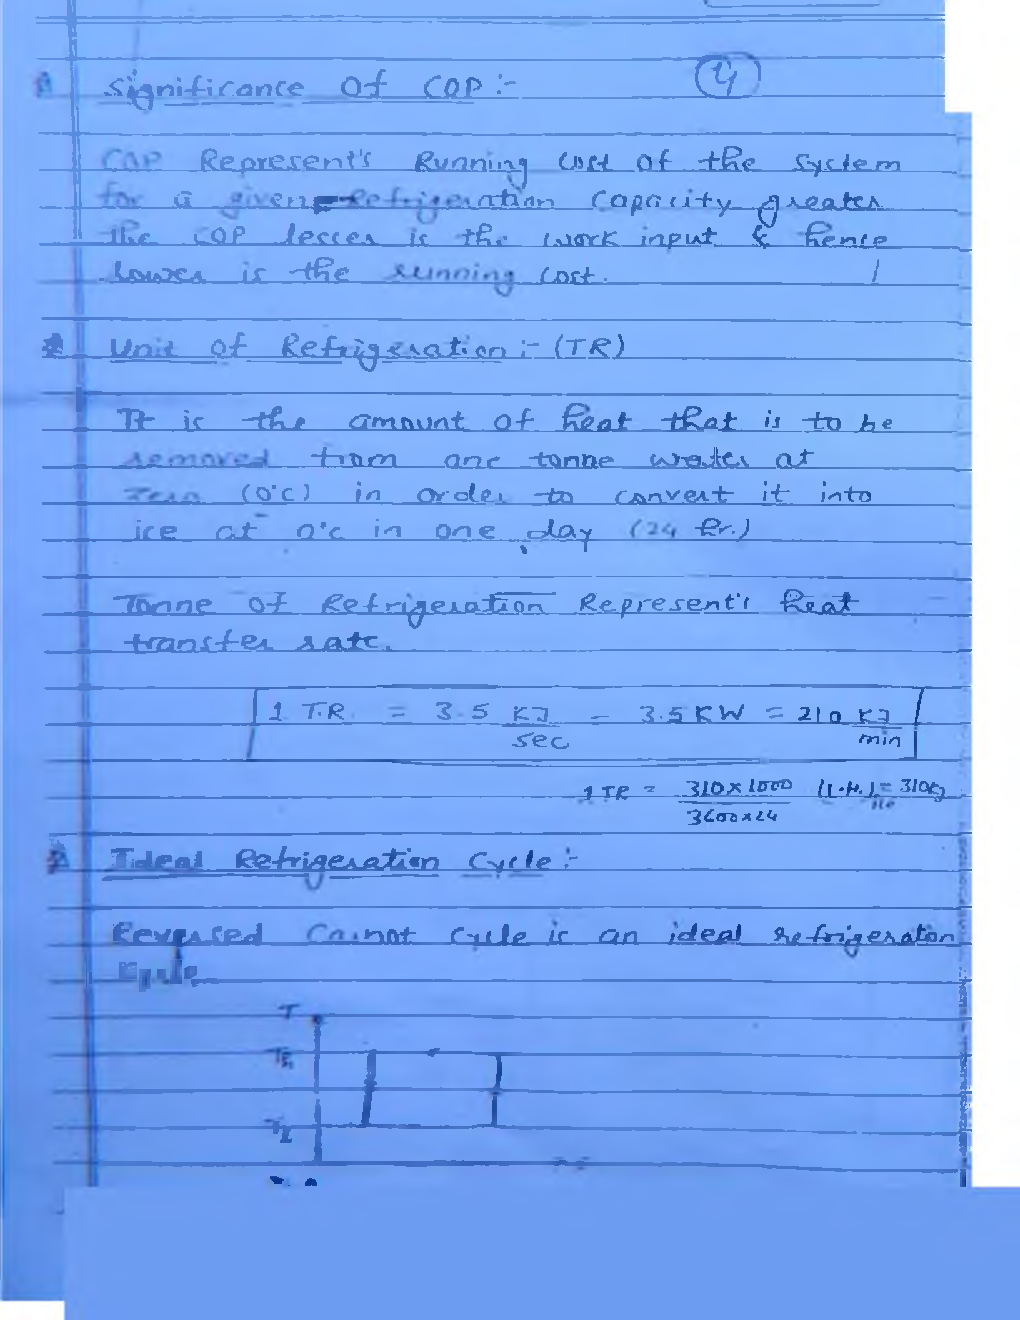 4
Significance Of COP :-
COP Represent's Running cost of the system
for a given Refrigeration Capacity greater
the COP lesser is the work input & hence
lower is the running cost.
Unit of Refrigeration :- (TR)
It is the amount of heat that is to be
removed from one tonne water at
zero (0°c) in order to convert it into
ice at 0°c in one day (24 hr.)
Tonne of Refrigeration Represent's heat
transfer rate.
1 T.R. = 3.5 KJ/sec = 3.5 KW = 210 KJ/min
1 TR = 310×1000/3600×24 (L.H.) = 310
Ideal Refrigeration Cycle :-
Reversed Carnot Cycle is an ideal refrigeraton
Cycle
T